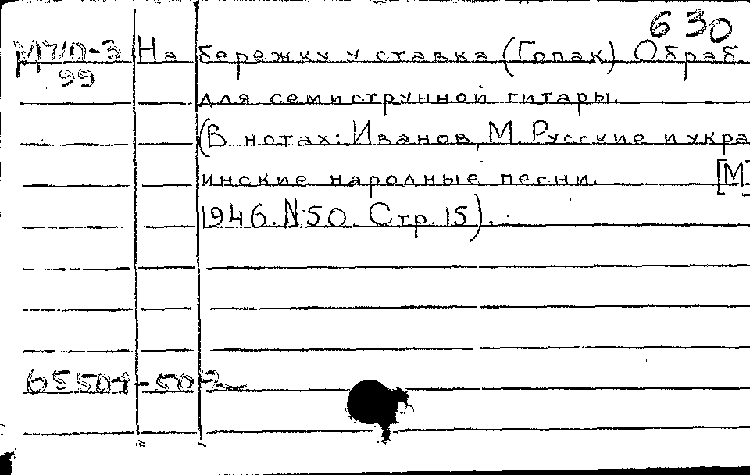 630
На бережку у ставка (Гопак) Обраб.
99
для семиструнной гитары.
(В нотах: Иванов, М. Русские и укра
инские народные песни. [М]
1946. №50. Стр. 15).